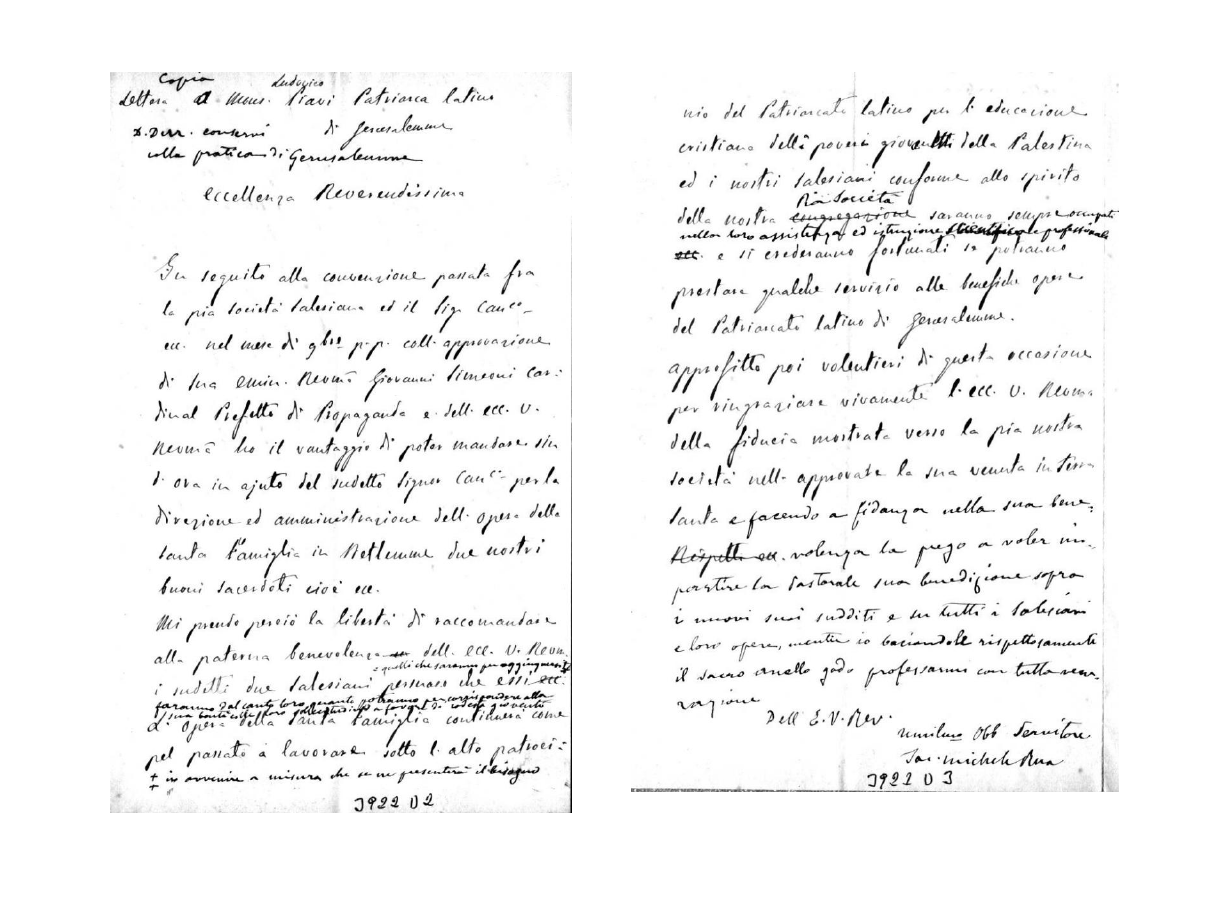 Copia
Ludovico
Lettera a Mons. Piavi Patriarca latino
di Gerusalemme
D. Durr. conservi
colla pratica di Gerusalemme
Eccellenza Reverendissima
In seguito alla convenzione passata fra
la pia società Salesiana ed il Sig. Canco
ecc. nel mese di 9bre p.p. coll' approvazione
di sua Emin. Revma Giovanni Simeoni Car:
dinal Prefetto di Propaganda e dell' Ecc. V.
Revma ho il vantaggio di poter mandare sin
d' ora in ajuto del sudetto Signor Canco per la
direzione ed amministrazione dell' opera della
Santa Famiglia in Betlemme due nostri
buoni sacerdoti cioè ecc.
Mi prendo perciò la libertà di raccomandare
alla paterna benevolenza dell' Ecc. V. Revma
e quelli che saranno per aggiungersi ‡
i sudetti due Salesiani persuaso che essi ecc.
faranno dal canto loro quanto potranno per corrispondere alla
sua bontà colle loro sollecitudini a favore di codesta gioventù
L' Opera della Santa Famiglia continuerà come
pel passato a lavorare sotto l' alto patroci:
‡ in avvenire a misura che se ne presenterà il bisogno
3922 D 2
nio del Patriarcato latino per l' educazione
cristiana della povera gioventù della Palestina
ed i nostri Salesiani conforme allo spirito
Pia Società
della nostra congregazione saranno sempre occupati
nella loro assistenza ed istruzione scientifica e professionale
ecc. e si crederanno fortunati se potranno
prestare qualche servizio alle benefiche opere
del Patriarcato latino di Gerusalemme.
Approfitto poi volentieri di questa occasione
per ringraziare vivamente l' Ecc. V. Revma
della fiducia mostrata verso la pia nostra
società nell' approvare la sua venuta in Terra
Santa e facendo a fidanza nella sua bene:
Rispetti ecc. volenza la prego a voler im:
partire la Pastorale sua benedizione sopra
i nuovi suoi sudditi e su tutti i Salesiani
e loro opere, mentre io baciandole rispettosamente
il sacro anello godo professarmi con tutta vene:
razione
Dell' E. V. Rev.
umilmo Obb Servitore
Sac. Michele Rua
3922 D 3